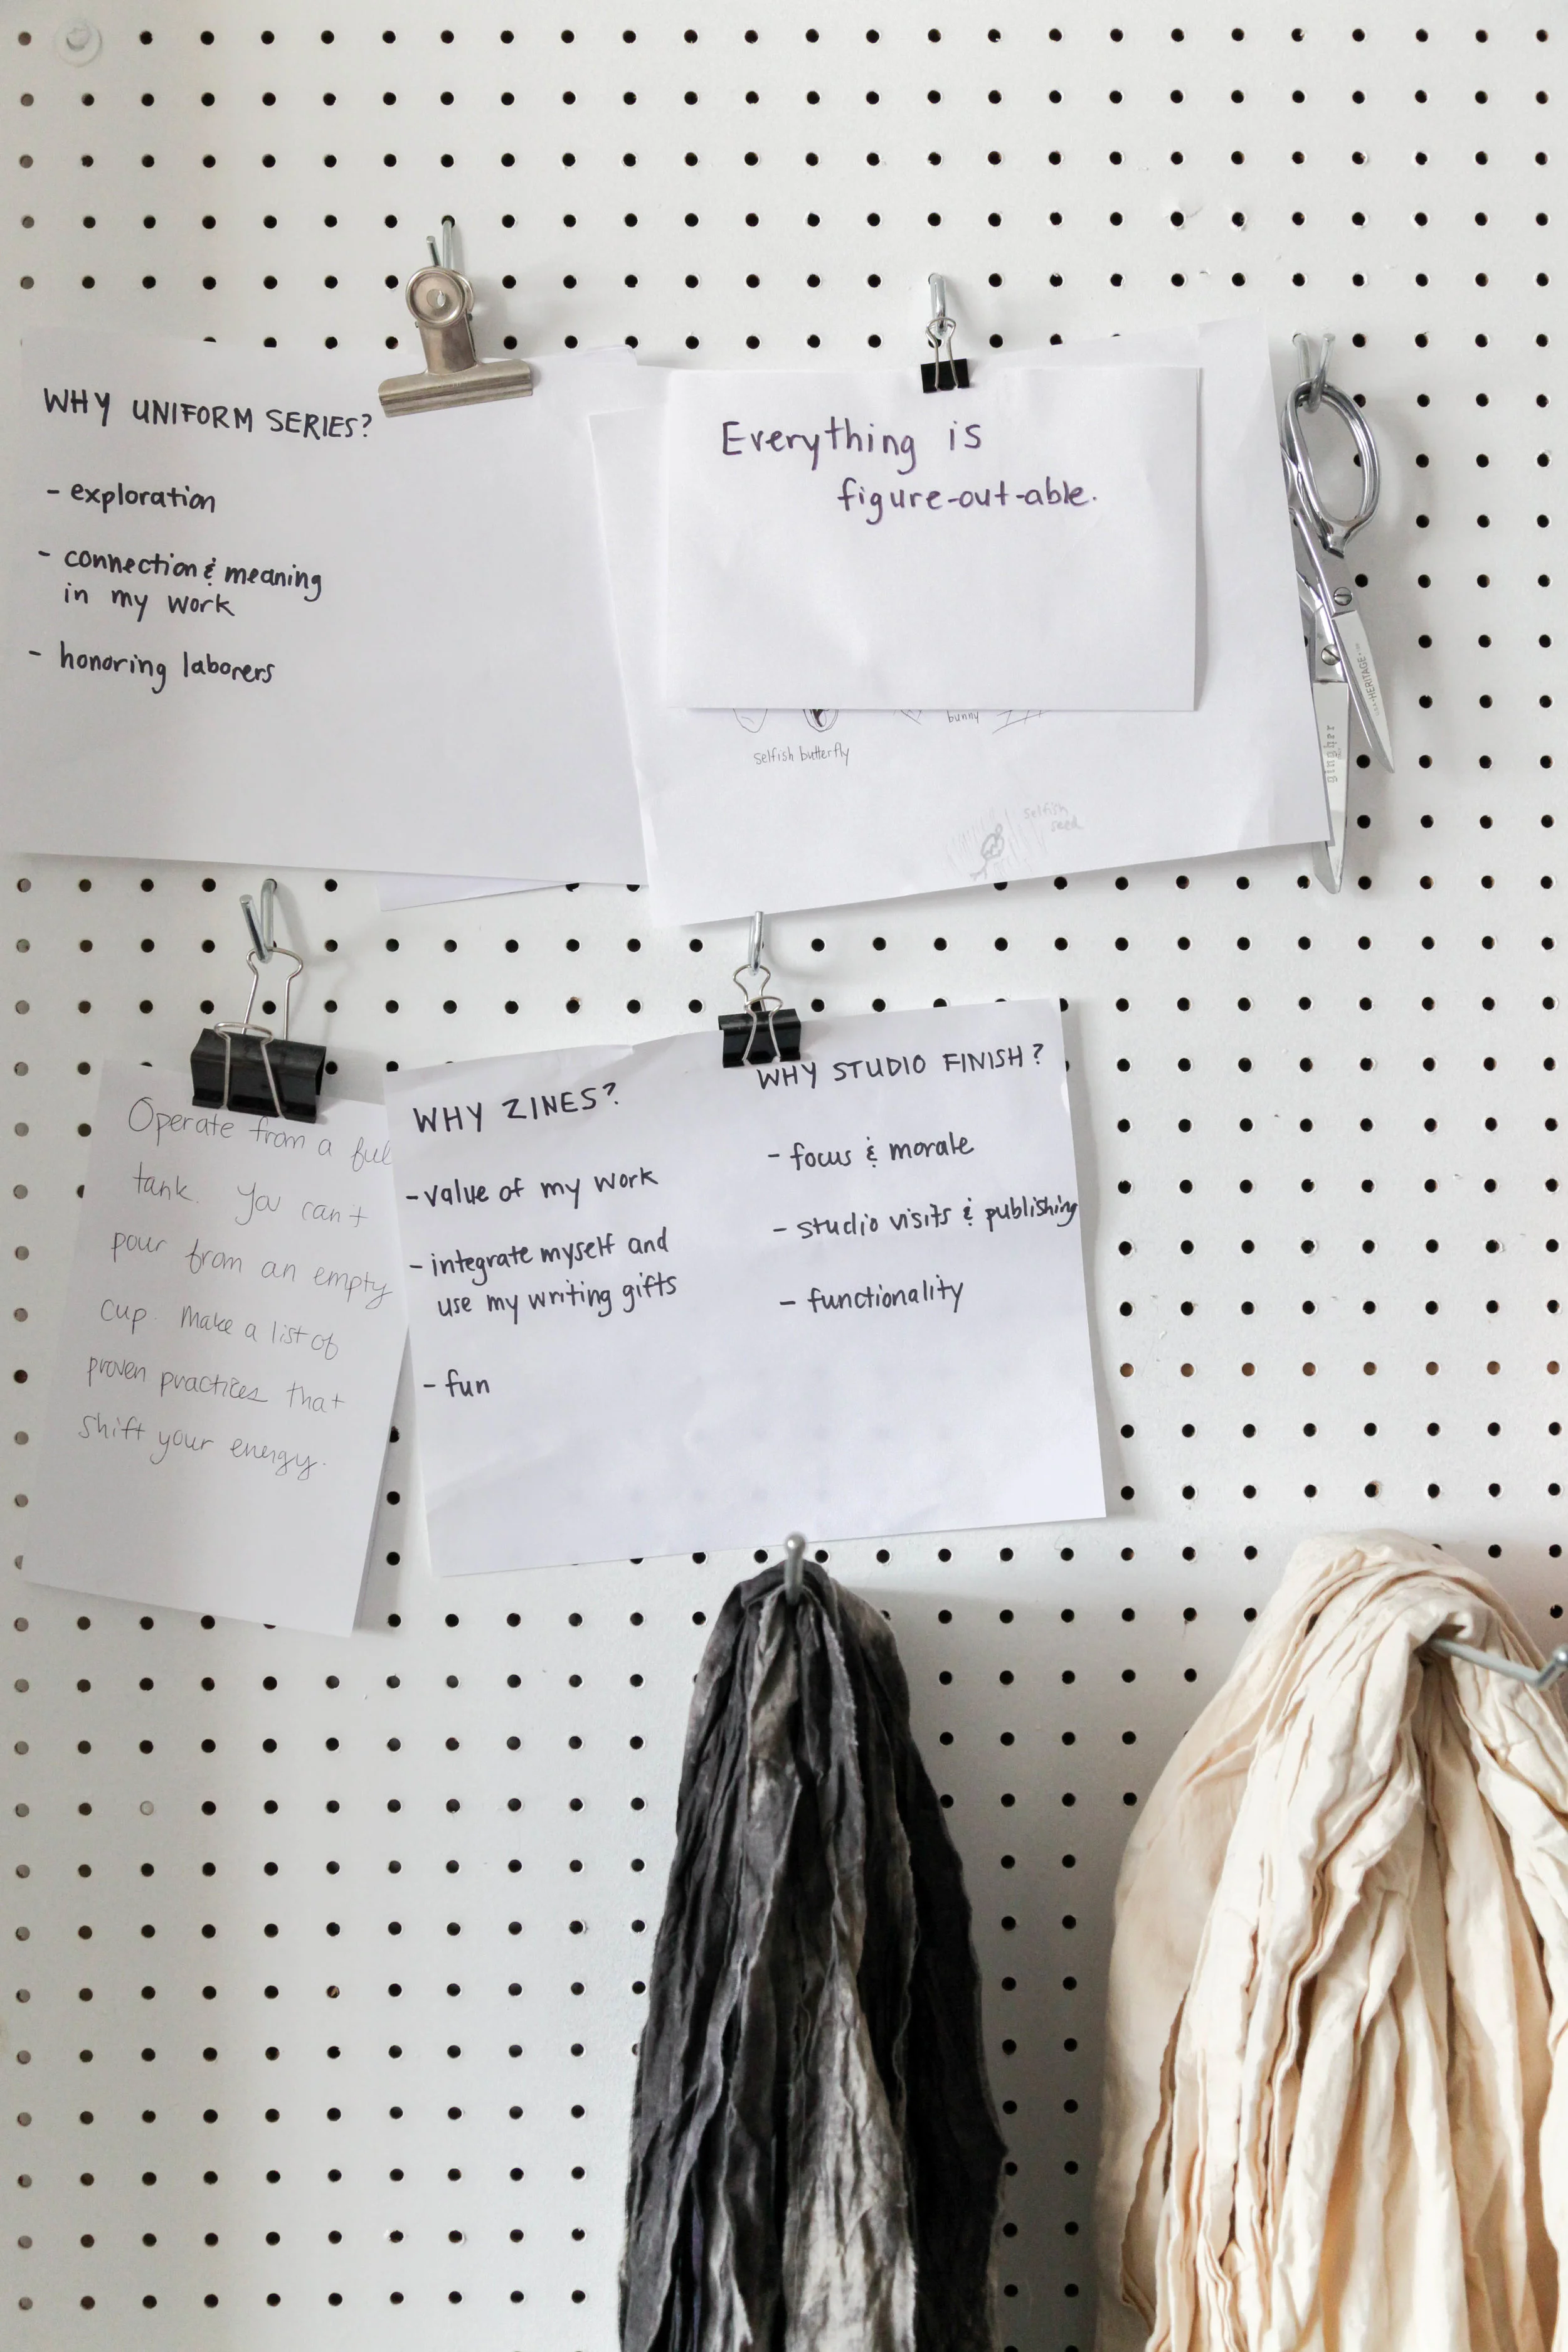 WHY UNIFORM SERIES?
- exploration
- connection & meaning
in my work
- honoring laborers
Everything is
figure-out-able.
bunny
selfish butterfly
selfish
seed
HERITAGE
gingher
Operate from a ful
tank. You can't
pour from an empty
cup. Make a list of
proven practices that
shift your energy.
WHY ZINES?
- value of my work
- integrate myself and
use my writing gifts
- fun
WHY STUDIO FINISH?
- focus & morale
- studio visits & publishing
- functionality